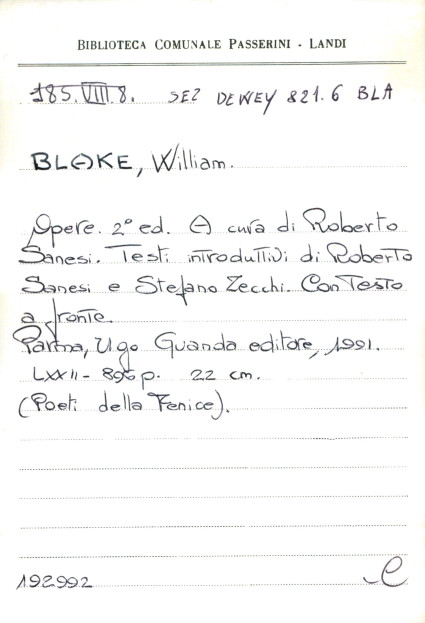 BIBLIOTECA COMUNALE PASSERINI - LANDI
185.VIII.8. SEZ DEWEY 821.6 BLA
BLAKE, William.
Opere. 2° ed. A cura di Roberto
Sanesi. Testi introduttivi di Roberto
Sanesi e Stefano Zecchi. Con Testo
a fronte.
Parma, Ugo Guanda editore, 1991.
LXXII - 896 p. 22 cm.
(Poeti della Fenice).
192992